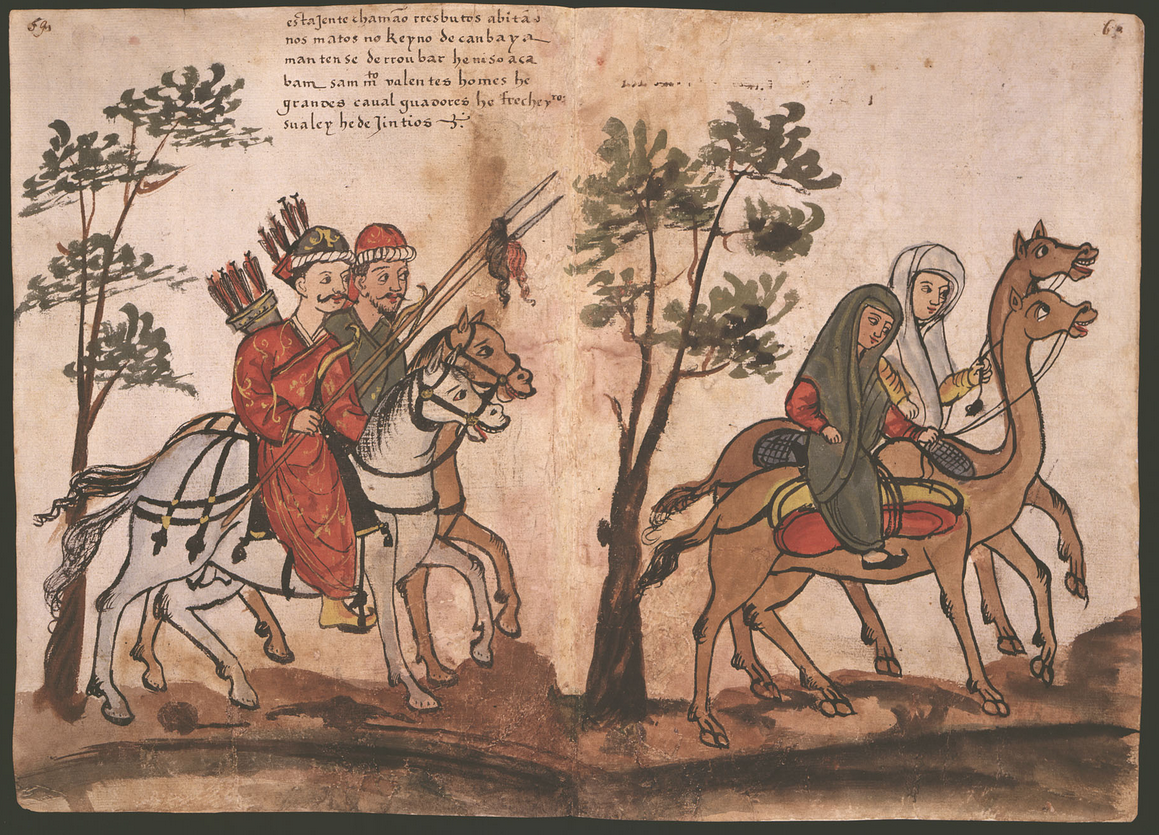 59
estaJente chamão rresbutos abitão
nos matos no Reyno de canbaya
mantense derroubar he niso aca
bam sam mto valentes homes he
grandes caualguadores he frecheyros
sua ley he de Jintios